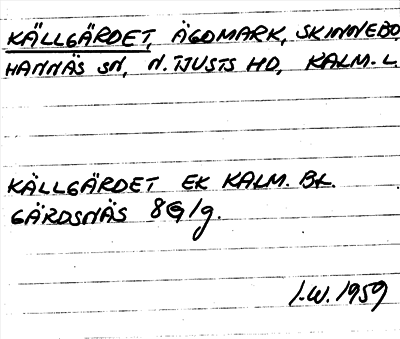 KÄLLGÄRDET, ÄGOMARK, SKINNEBO,
HANNÄS SN, N. TJUSTS HD, KALM. L.
KÄLLGÄRDET EK KALM. BL.
GÄRDSNÄS 8G/g.
I.W. 1959